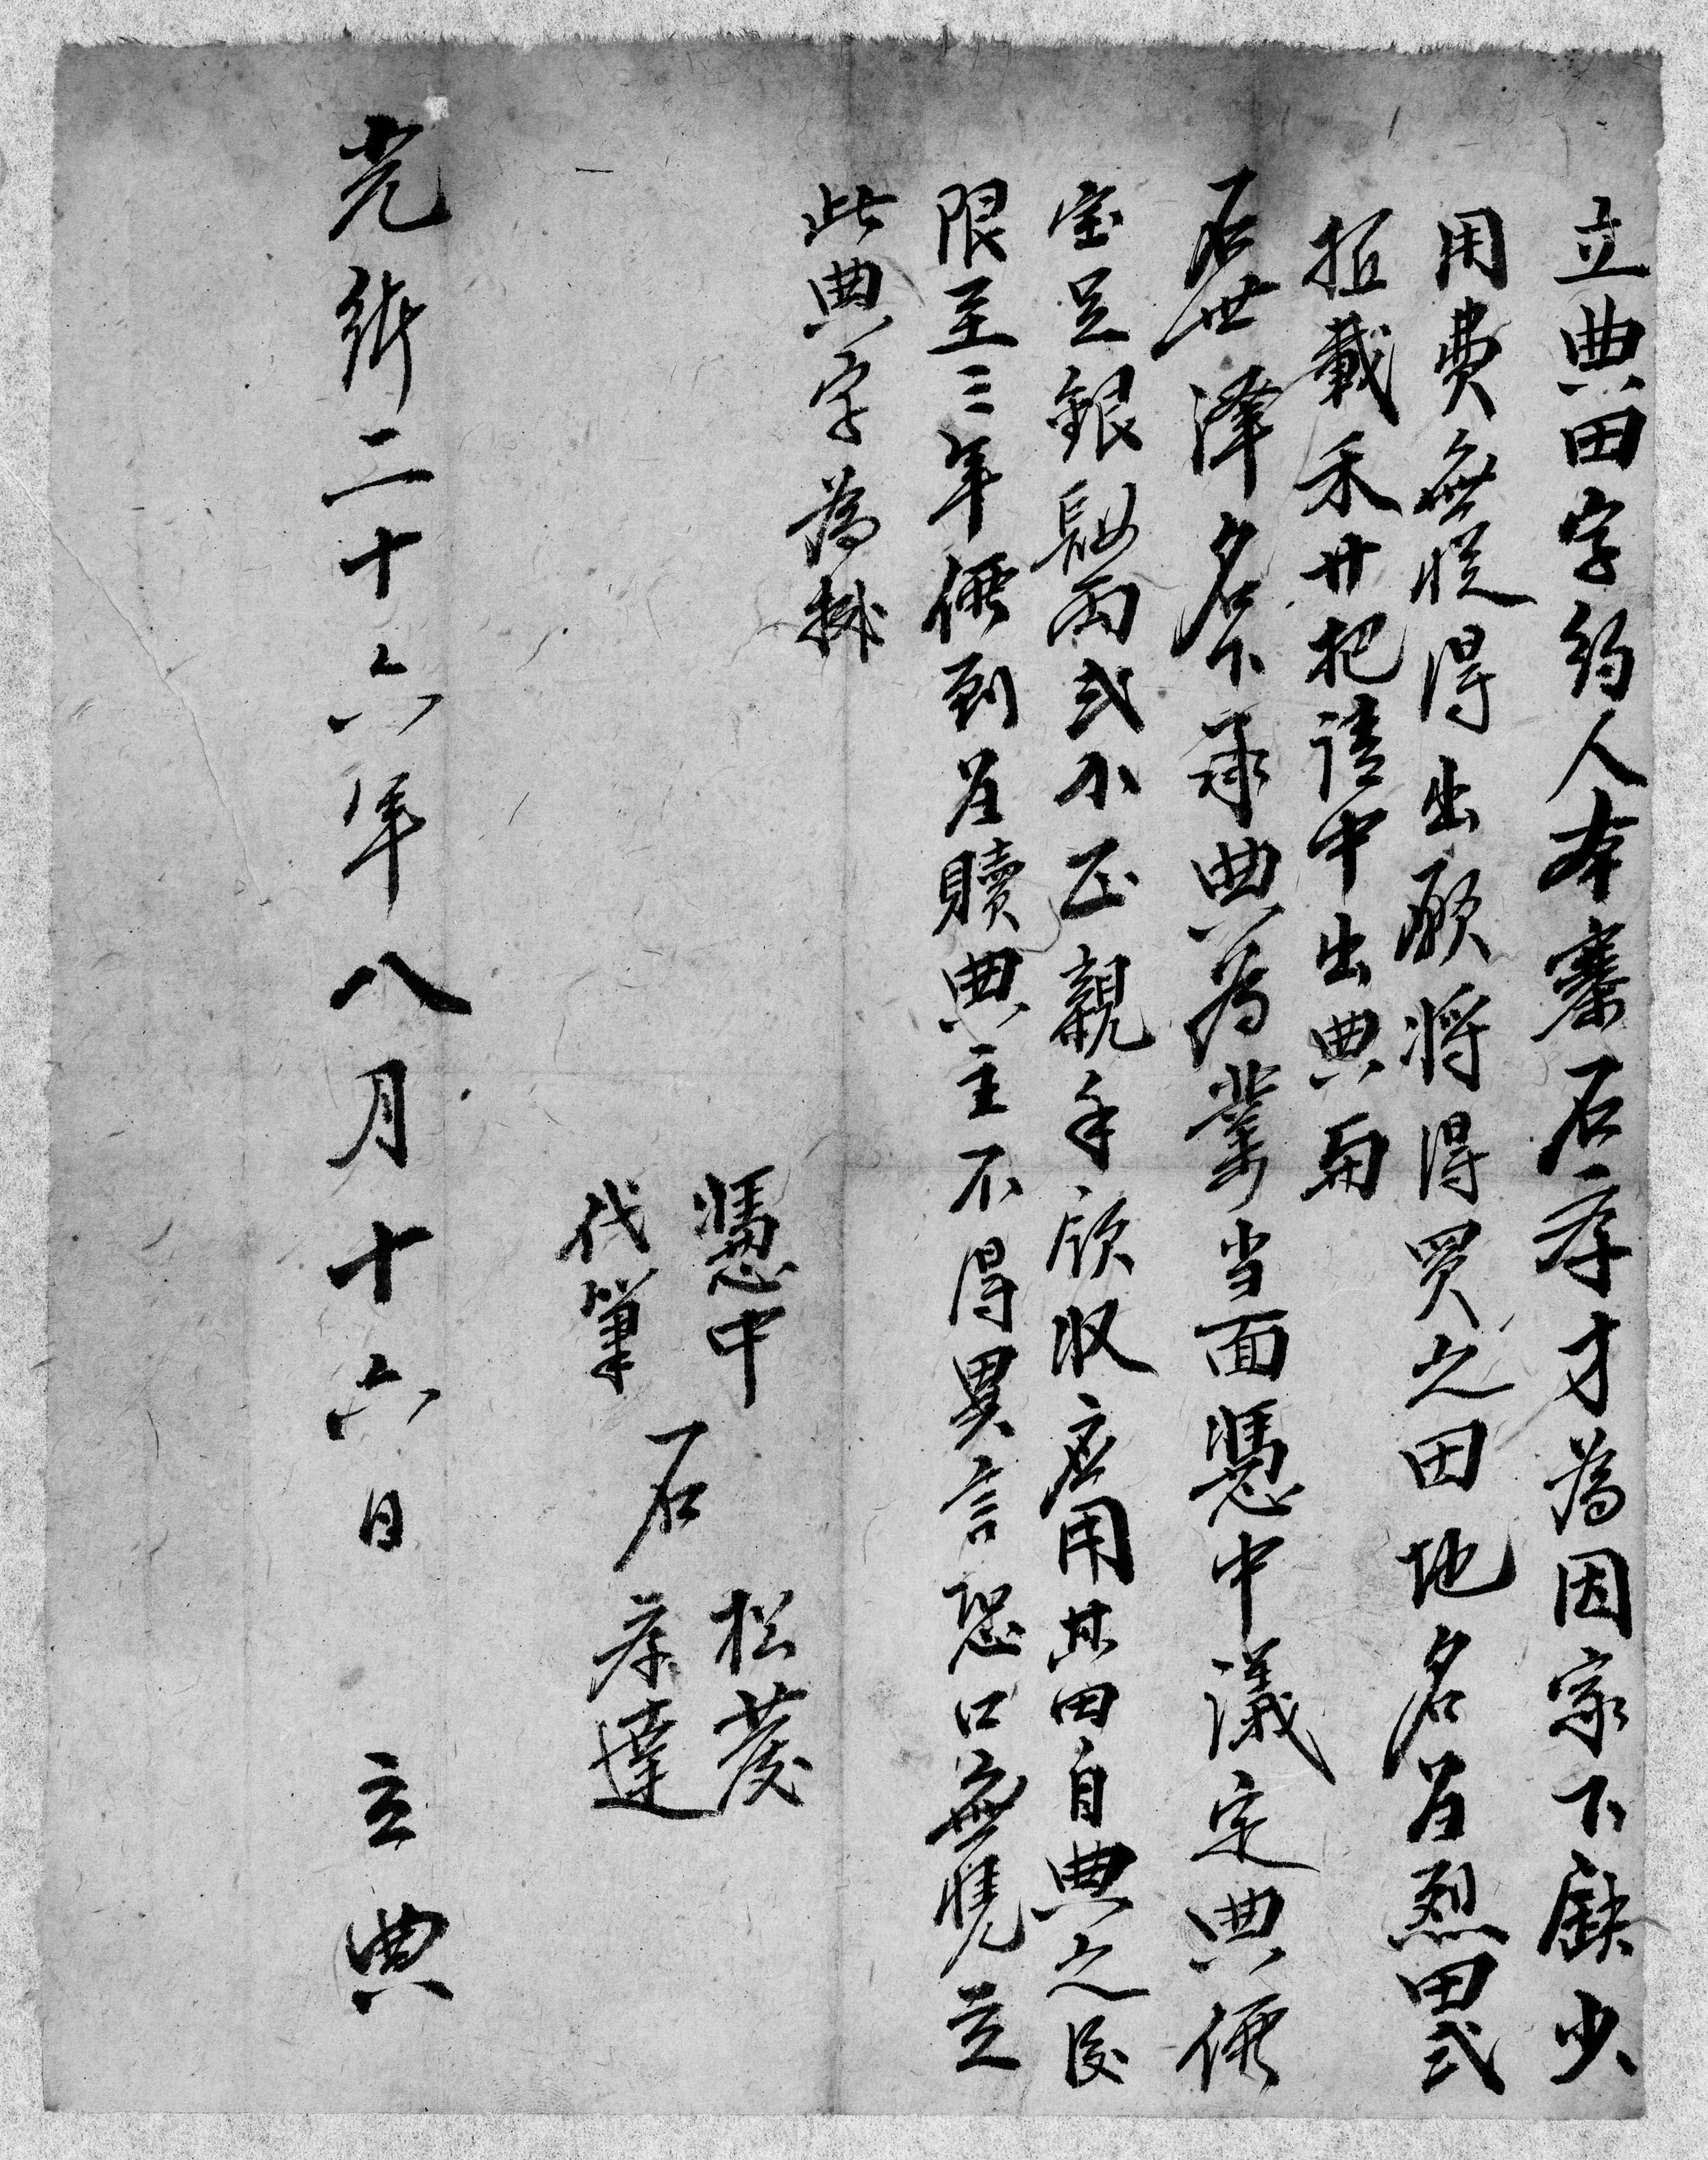 立典田字約人本寨石孝才為因家下缺少
用費無從得出願將得買之田地名岩烈田弍
坵載禾廿把請中出典與
石世澤名下承典為業当面憑中議定典價
宝足銀 両弍小正親手領收应用其田自典之後
限至三年價到 贖典主不得異言恐口無憑立
此典字為據
憑中 石 松茂
代筆 石 孝達
光緒二十六年八月十六日 立典